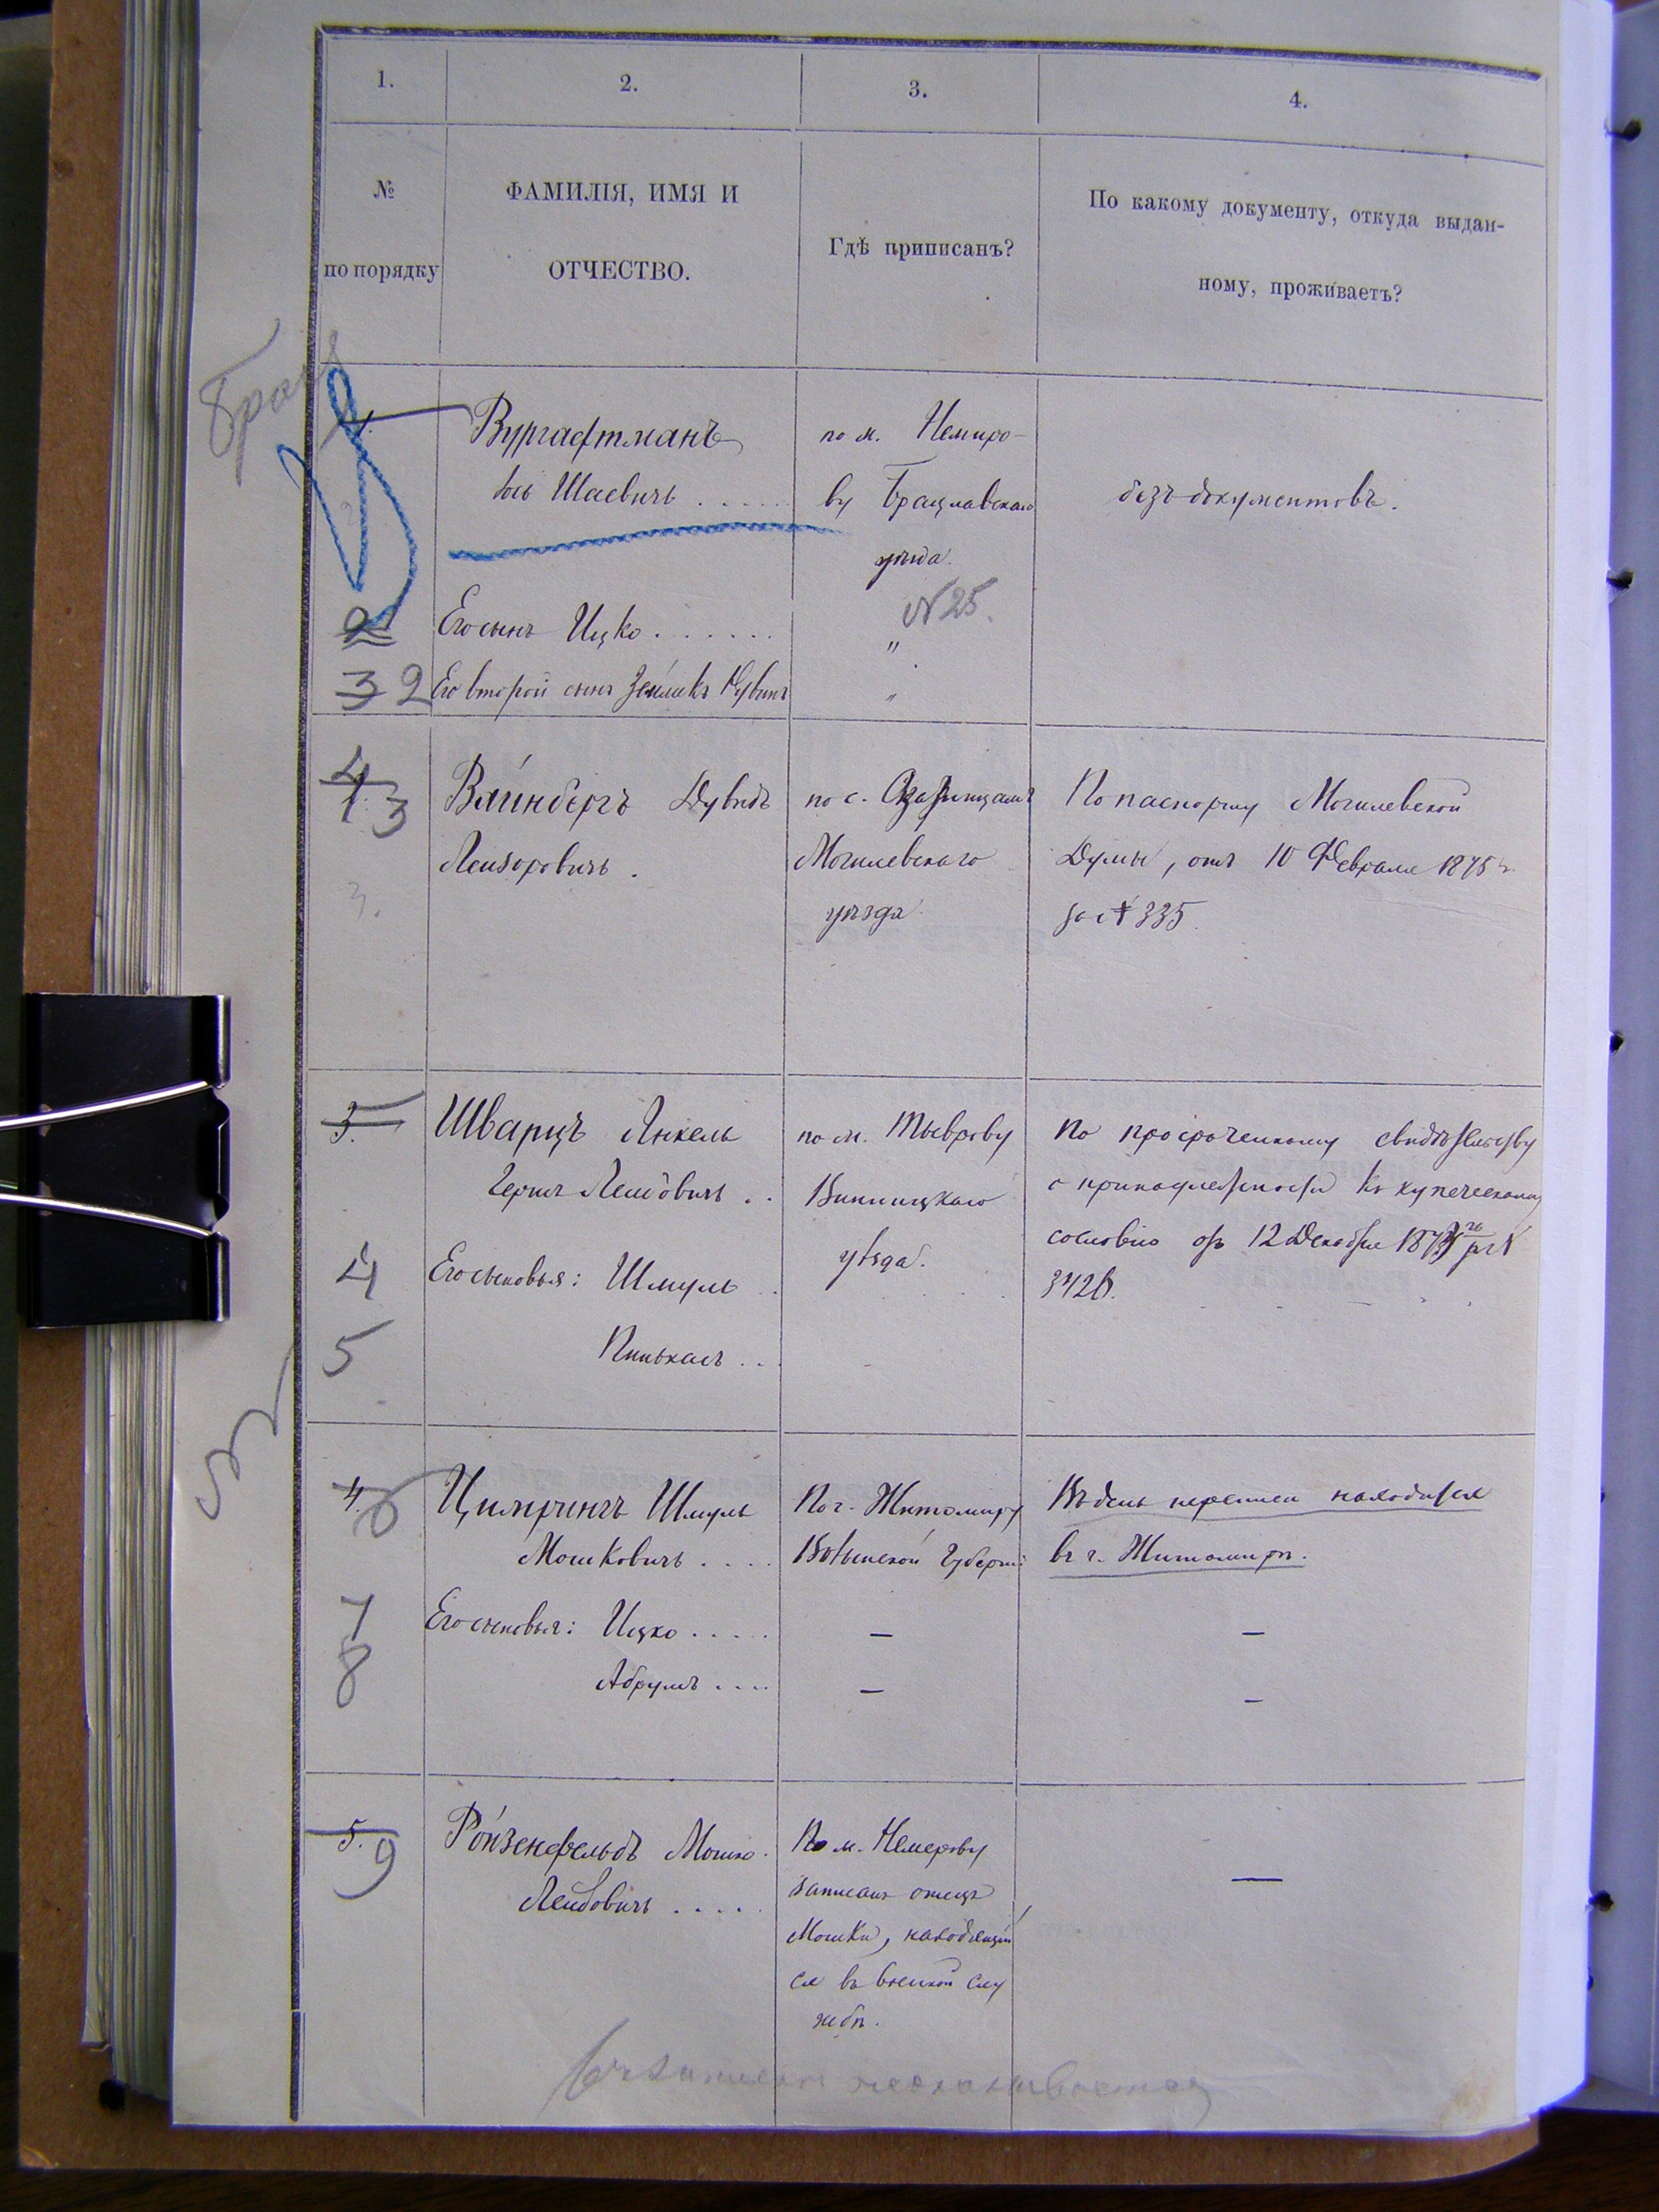 1.
2.
3.
4.
№
по порядку
ФАМИЛІЯ, ИМЯ И
ОТЧЕСТВО.
Гдѣ приписанъ?
По какому документу, откуда выдан-
ному, проживаетъ?
Вургафтманъ
Іось Шаевичъ . . . . .
по м. Немиро-
ву Брацлавскаго
уѣзда.
№ 25.
безъ документовъ.
2
Его сынъ Ицко . . . . . .
"
3 2
Его второй сынъ Зейликъ Рувинъ
"
4
1. 3
3.
Вайнбергъ Дувидъ
Лейзоровичъ .
по с. Озаринцамъ
Могилевскаго
уѣзда
По паспорту Могилевской
Думы, отъ 10 Февраля 1875 г.
за № 335.
3.
Шварцъ Янкель
Гершъ Лейбовичъ . .
по м. Тыврову
Винницкаго
уѣзда.
По просроченному свидѣтельству
о принадлежности къ купеческому
сословію отъ 12 Декабря
3426.
4
Его сыновья: Шмуль . .
5
Пинькасъ . .
4. 6
Цимрингъ Шмуль
Мошковичъ . . . .
По г. Житомиру
Волынской Губерніи
Въ день переписи находился
въ г. Житомирѣ.
7
Его сыновья: Ицко . . . . .
—
—
8
Абрумъ . . . .
—
—
5. 9
Ройзенфельдъ Мошко
Лейбовичъ . . . . .
По м. Немерову
записанъ отецъ
Мошки, находящій
ся въ военной слу
жбѣ.
—